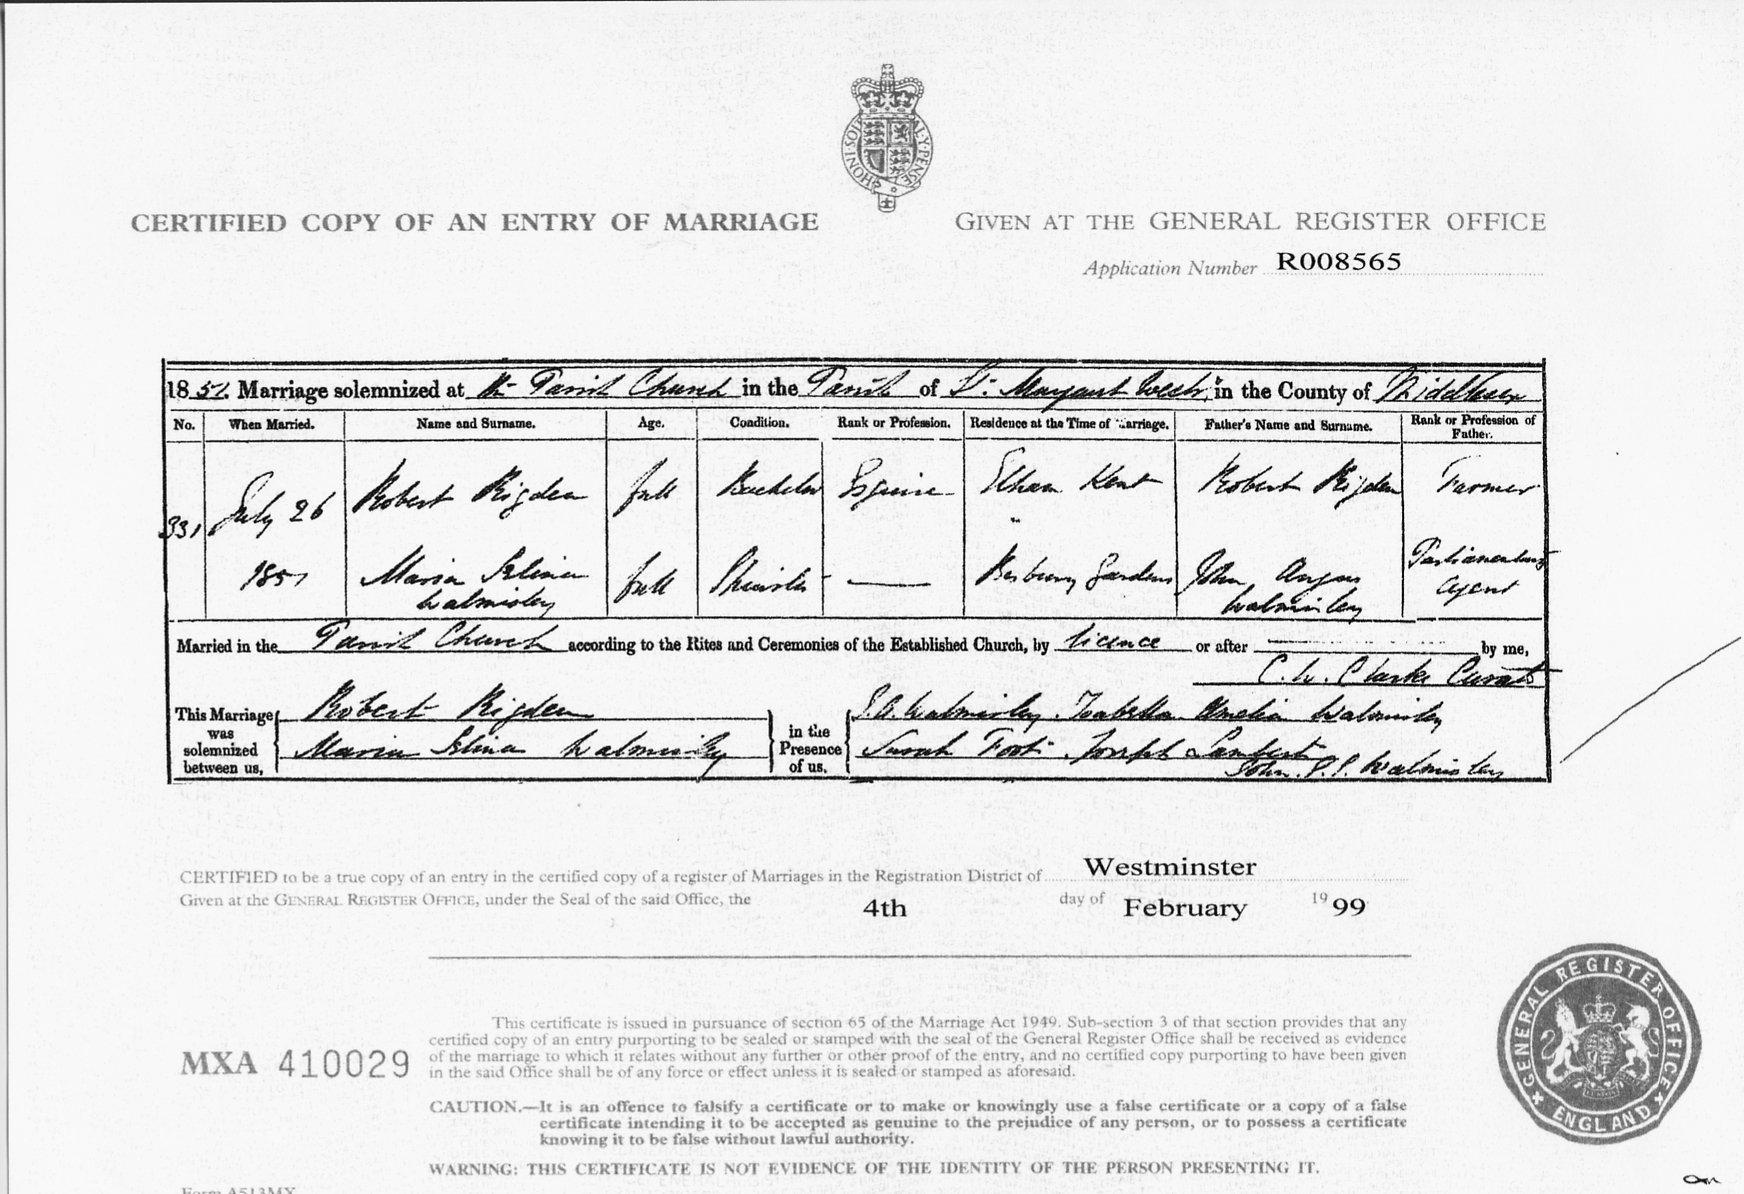 HONI·SOIT·
AL·Y·PENSE
CERTIFIED COPY OF AN ENTRY OF MARRIAGE
GIVEN AT THE GENERAL REGISTER OFFICE
Application Number R008565
1851. Marriage solemnized at the Parish Church in the Parish of St. Margaret Westr. in the County of Middlesex
No. When Married. Name and Surname. Age. Condition. Rank or Profession. Residence at the Time of Marriage. Father's Name and Surname. Rank or Profession of Father.
331 July 26 Robert Rigden full Bachelor Esquire Eltham Kent Robert Rigden Farmer
1851 Maria Selina Walmisley full Spinster — Gardens John Angus Walmisley Parliamentary Agent
Married in the Parish Church according to the Rites and Ceremonies of the Established Church, by licence or after by me,
C. W. Clarke Curate
This Marriage was solemnized between us, Robert Rigden
Maria Selina Walmisley
in the Presence of us, S. A. Walmisley. Isabella Amelia Walmisley
Sarah Foot. Joseph Lambert
John. S. S. Walmisley
CERTIFIED to be a true copy of an entry in the certified copy of a register of Marriages in the Registration District of Westminster
Given at the GENERAL REGISTER OFFICE, under the Seal of the said Office, the 4th day of February 1999
This certificate is issued in pursuance of section 65 of the Marriage Act 1949. Sub-section 3 of that section provides that any
certified copy of an entry purporting to be sealed or stamped with the seal of the General Register Office shall be received as evidence
of the marriage to which it relates without any further or other proof of the entry, and no certified copy purporting to have been given
in the said Office shall be of any force or effect unless it is sealed or stamped as aforesaid.
MXA 410029
CAUTION.—It is an offence to falsify a certificate or to make or knowingly use a false certificate or a copy of a false
certificate intending it to be accepted as genuine to the prejudice of any person, or to possess a certificate
knowing it to be false without lawful authority.
WARNING: THIS CERTIFICATE IS NOT EVIDENCE OF THE IDENTITY OF THE PERSON PRESENTING IT.
GENERAL REGISTER OFFICE
ENGLAND
Form A513MX